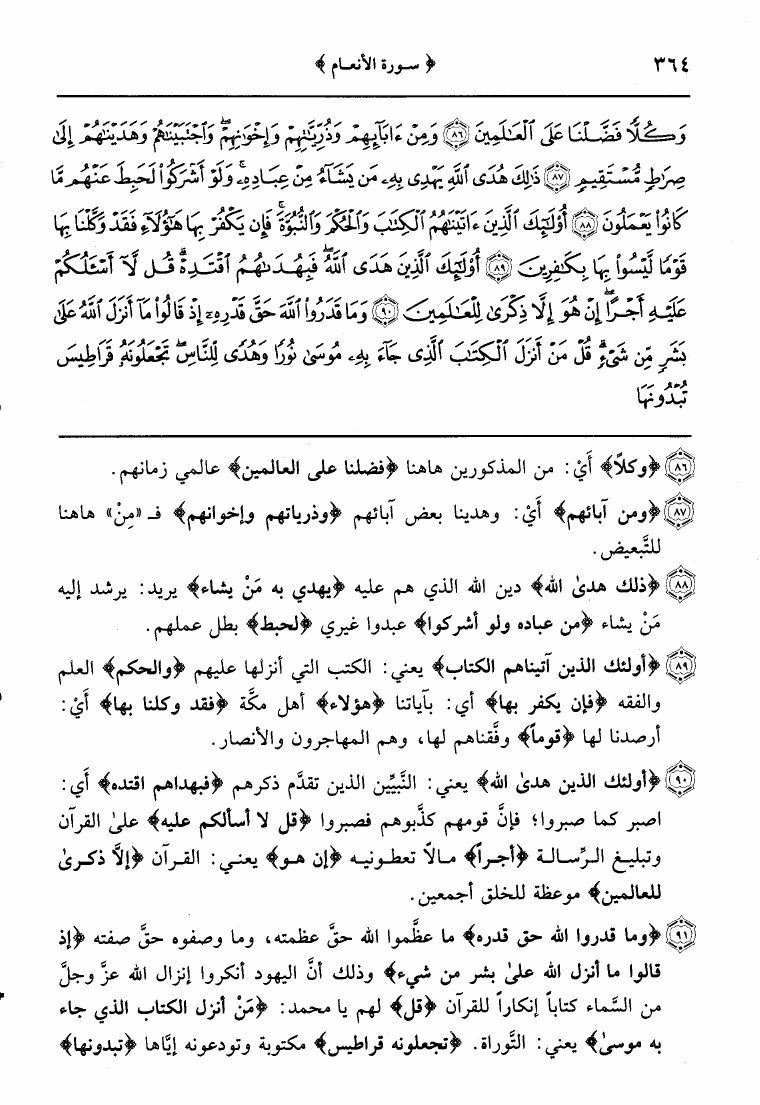 ٣٦٤ ﴿ سورة الأنعام ﴾
وَكُلًّا فَضَّلْنَا عَلَى ٱلْعَٰلَمِينَ ۝٨٦ وَمِنْ ءَابَآئِهِمْ وَذُرِّيَّٰتِهِمْ وَإِخْوَٰنِهِمْ ۖ وَٱجْتَبَيْنَٰهُمْ وَهَدَيْنَٰهُمْ إِلَىٰ
صِرَٰطٍ مُّسْتَقِيمٍ ۝٨٧ ذَٰلِكَ هُدَى ٱللَّهِ يَهْدِى بِهِۦ مَن يَشَآءُ مِنْ عِبَادِهِۦ ۚ وَلَوْ أَشْرَكُوا۟ لَحَبِطَ عَنْهُم مَّا
كَانُوا۟ يَعْمَلُونَ ۝٨٨ أُو۟لَٰٓئِكَ ٱلَّذِينَ ءَاتَيْنَٰهُمُ ٱلْكِتَٰبَ وَٱلْحُكْمَ وَٱلنُّبُوَّةَ ۚ فَإِن يَكْفُرْ بِهَا هَٰٓؤُلَآءِ فَقَدْ وَكَّلْنَا بِهَا
قَوْمًا لَّيْسُوا۟ بِهَا بِكَٰفِرِينَ ۝٨٩ أُو۟لَٰٓئِكَ ٱلَّذِينَ هَدَى ٱللَّهُ ۖ فَبِهُدَىٰهُمُ ٱقْتَدِهْ ۗ قُل لَّآ أَسْـَٔلُكُمْ
عَلَيْهِ أَجْرًا ۖ إِنْ هُوَ إِلَّا ذِكْرَىٰ لِلْعَٰلَمِينَ ۝٩٠ وَمَا قَدَرُوا۟ ٱللَّهَ حَقَّ قَدْرِهِۦٓ إِذْ قَالُوا۟ مَآ أَنزَلَ ٱللَّهُ عَلَىٰ
بَشَرٍ مِّن شَىْءٍ ۗ قُلْ مَنْ أَنزَلَ ٱلْكِتَٰبَ ٱلَّذِى جَآءَ بِهِۦ مُوسَىٰ نُورًا وَهُدًى لِّلنَّاسِ ۖ تَجْعَلُونَهُۥ قَرَاطِيسَ
تُبْدُونَهَا
٨٦ ﴿وكلاً﴾ أَيْ: من المذكورين هاهنا ﴿فضلنا على العالمين﴾ عالمي زمانهم.
٨٧ ﴿ومن آبائهم﴾ أَيْ: وهدينا بعض آبائهم ﴿وذرياتهم وإخوانهم﴾ فـ «مِنْ» هاهنا
للتَّبعيض.
٨٨ ﴿ذلك هدىٰ الله﴾ دين الله الذي هم عليه ﴿يهدي به مَنْ يشاء﴾ يريد: يرشد إليه
مَنْ يشاء ﴿من عباده ولو أشركوا﴾ عبدوا غيري ﴿لحبط﴾ بطل عملهم.
٨٩ ﴿أولئك الذين آتيناهم الكتاب﴾ يعني: الكتب التي أنزلها عليهم ﴿والحكم﴾ العلم
والفقه ﴿فإن يكفر بها﴾ أي: بآياتنا ﴿هؤلاء﴾ أهل مكَّة ﴿فقد وكلنا بها﴾ أَيْ:
أرصدنا لها ﴿قوماً﴾ وفَّقناهم لها، وهم المهاجرون والأنصار.
٩٠ ﴿أولئك الذين هدىٰ الله﴾ يعني: النَّبيِّين الذين تقدَّم ذكرهم ﴿فبهداهم اقتده﴾ أَي:
اصبر كما صبروا؛ فإنَّ قومهم كذَّبوهم فصبروا ﴿قل لا أسألكم عليه﴾ علىٰ القرآن
وتبليغ الرِّسالة ﴿أجراً﴾ مالاً تعطونيه ﴿إن هو﴾ يعني: القرآن ﴿إلاَّ ذكرىٰ
للعالمين﴾ موعظة للخلق أجمعين.
٩١ ﴿وما قدروا الله حق قدره﴾ ما عظَّموا الله حقَّ عظمته، وما وصفوه حقَّ صفته ﴿إذ
قالوا ما أنزل الله علىٰ بشر من شيء﴾ وذلك أنَّ اليهود أنكروا إنزال الله عزَّ وجلَّ
من السَّماء كتاباً إنكاراً للقرآن ﴿قل﴾ لهم يا محمد: ﴿مَنْ أنزل الكتاب الذي جاء
به موسىٰ﴾ يعني: التَّوراة. ﴿تجعلونه قراطيس﴾ مكتوبة وتودعونه إيَّاها ﴿تبدونها﴾